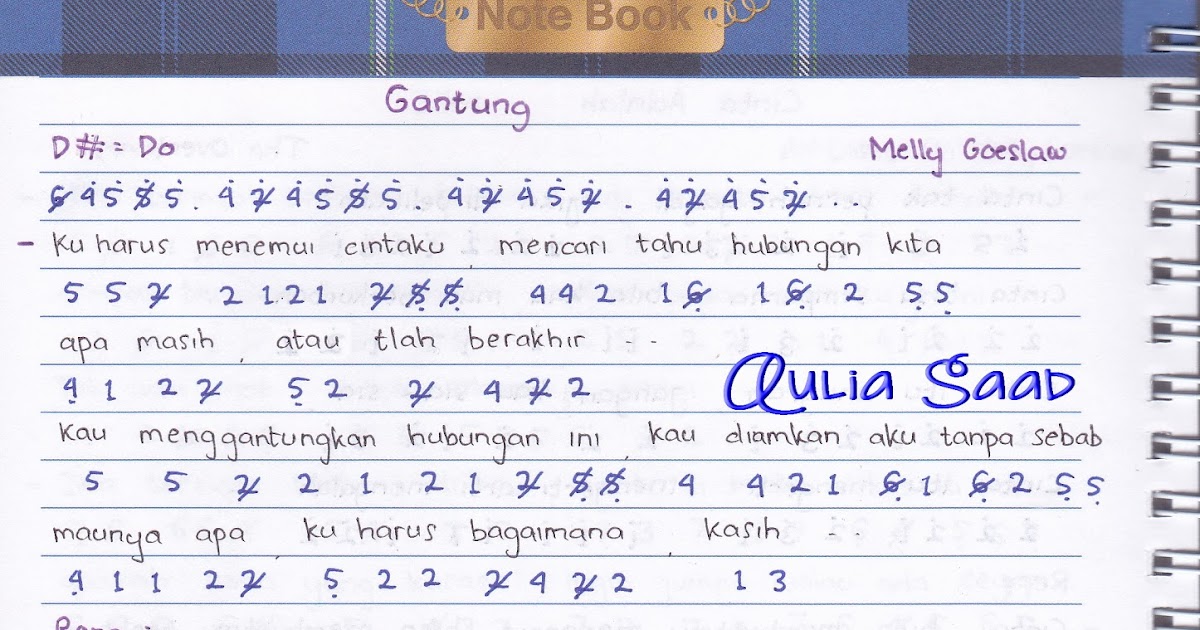 Note Book
Gantung
D# = Do
Melly Goeslaw
6̸ 4̇ 5̇ 5̸̇ 5̇ . 4̇ 2̸̇ 4̇ 5̇ 5̸̇ 5̇ . 4̇ 2̸̇ 4̇ 5̇ 2̸̇ . 4̇ 2̸̇ 4̇ 5̇ 2̸̇ . . .
- Ku harus menemui cintaku, mencari tahu hubungan kita
5 5 2̸ 2 1 2 1 2̸ 5̸̣ 5̸̣ 4 4 2 1 6̸̣ 1 6̸̣ 2 5̣ 5̣
apa masih, atau tlah berakhir - -
4̣ 1 2 2̸ 5̣ 2 2̸ 4 2̸ 2
Aulia Saad
Kau menggantungkan hubungan ini, kau diamkan aku tanpa sebab
5 5 2̸ 2 1 2 1 2̸ 5̸̣ 5̸̣ 4 4 2 1 6̸̣ 6̸̣ 2 5̣ 5̣
maunya apa, ku harus bagaimana, kasih
4̣ 1 1 2 2̸ 5̣ 2 2 2̸ 4 2̸ 2 1 3